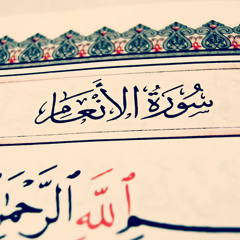 سُورَةُ الأَنْعَامِ
ٱللَّهِ ٱلرَّحْمَٰ